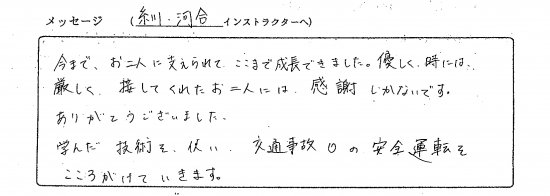 メッセージ (糸川・河合 インストラクターへ)
今まで、お二人に支えられて、ここまで成長できました。優しく、時には、
厳しく、接してくれたお二人には、感謝しかないです。
ありがとうございました。
学んだ技術を、使い、交通事故0の安全運転を
こころがけていきます。